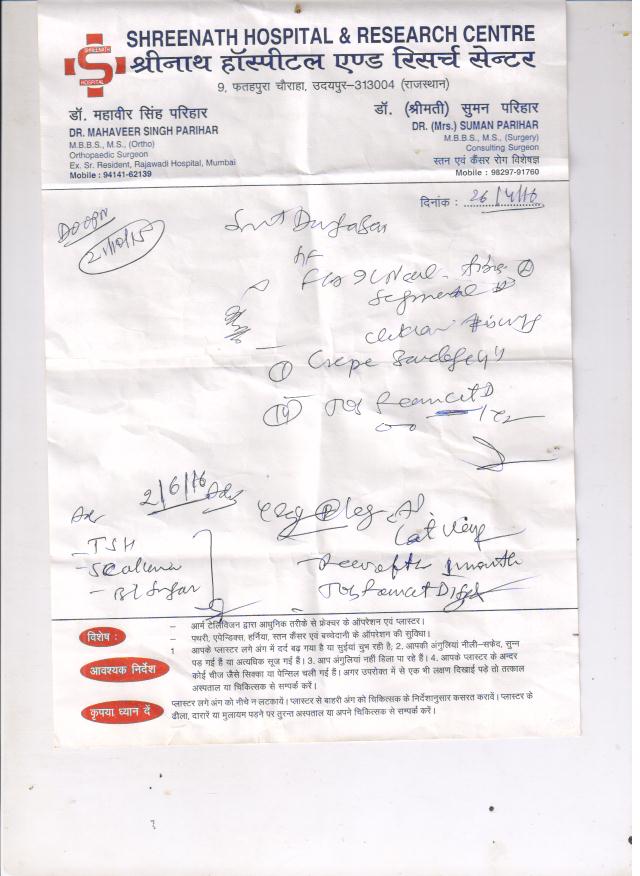 SHREENATH HOSPITAL
SHREENATH HOSPITAL & RESEARCH CENTRE
श्रीनाथ हॉस्पीटल एण्ड रिसर्च सेन्टर
9, फतहपुरा चौराहा, उदयपुर-313004 (राजस्थान)
डॉ. महावीर सिंह परिहार
DR. MAHAVEER SINGH PARIHAR
M.B.B.S., M.S., (Ortho)
Orthopaedic Surgeon
Ex. Sr. Resident, Rajawadi Hospital, Mumbai
Mobile : 94141-62139
डॉ. (श्रीमती) सुमन परिहार
DR. (Mrs.) SUMAN PARIHAR
M.B.B.S., M.S., (Surgery)
Consulting Surgeon
स्तन एवं कैंसर रोग विशेषज्ञ
Mobile : 98297-91760
दिनांक : 26/4/16
Segmental
Crepe Bandage 4"
2/6/16 Adv
Xray leg AP
Lat view
Adv
- TSH
- S Calcium
- Bl Sugar
1 month
विशेष :
– आर्म टेलीविजन द्वारा आधुनिक तरीके से फ्रेक्चर के ऑपरेशन एवं प्लास्टर।
– पथरी, एपेन्डिक्स, हर्निया, स्तन कैंसर एवं बच्चेदानी के ऑपरेशन की सुविधा।
आवश्यक निर्देश
1 आपके प्लास्टर लगे अंग में दर्द बढ़ गया है या सुईयां चुभ रही है; 2. आपकी अंगुलियां नीली-सफेद, सुन्न
पड़ गई है या अत्यधिक सूज गई हैं। 3. आप अंगुलियां नहीं हिला पा रहे हैं। 4. आपके प्लास्टर के अन्दर
कोई चीज जैसे सिक्का या पेन्सिल चली गई हैं। अगर उपरोक्त में से एक भी लक्षण दिखाई पड़े तो तत्काल
अस्पताल या चिकित्सक से सम्पर्क करें।
कृपया ध्यान दें
प्लास्टर लगे अंग को नीचे न लटकायें। प्लास्टर से बाहरी अंग को चिकित्सक के निर्देशानुसार कसरत करावें। प्लास्टर के
ढीला, दारारें या मुलायम पड़ने पर तुरन्त अस्पताल या अपने चिकित्सक से सम्पर्क करें।